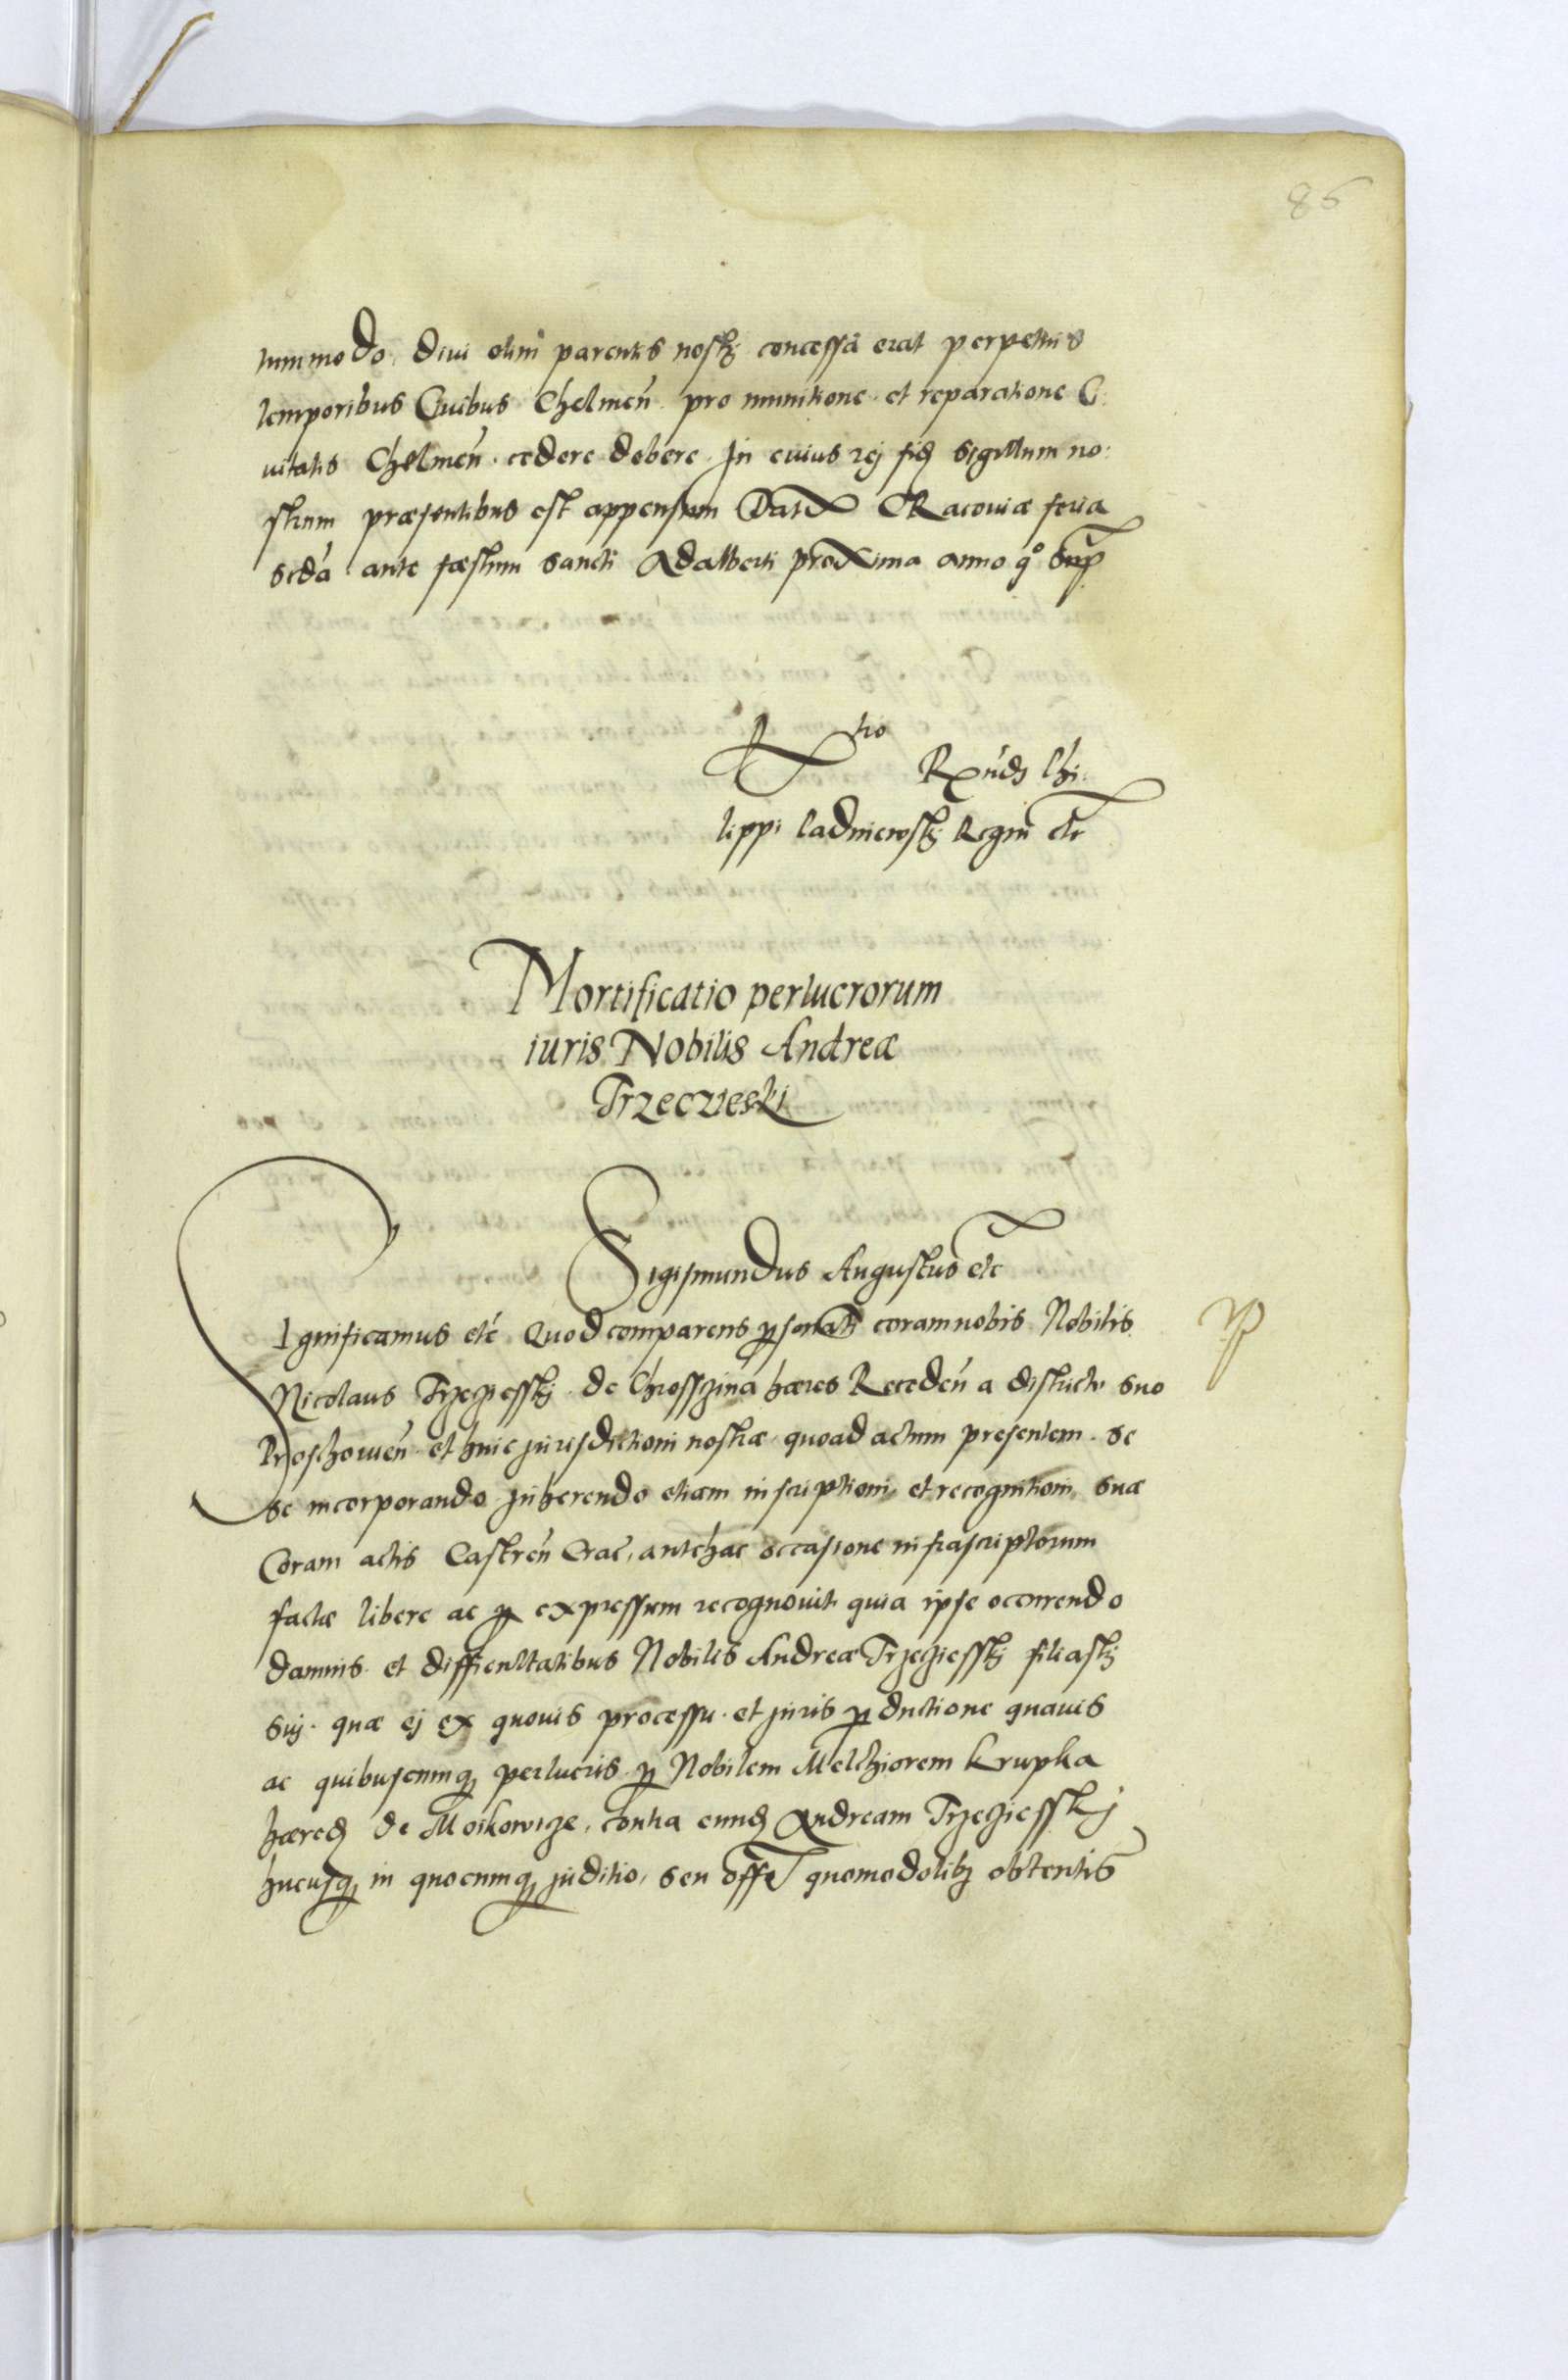 86
tummodo, diui olim parentis nostrj concessa erat perpetuis
temporibus Ciuibus Chelmeń. pro munitione et reparatione Ci:
uitatis Chelmeń. cedere debere. In cuius rej fidȝ sigillum no:
strum præsentibus est appensum Dat CRacouiæ feria
scda ante fæstum sancti Adalberti proxima anno q° sup
Rtio Rńdj Phi:
lippi Padniewskj Regni etc
Mortificatio perlucrorum
iuris Nobilis Andreæ
Trzeczieski
Sigismundus Augustus etc
Ignificamus etc Quod comparens psonatr coram nobis Nobilis
Nicolaus Trzeziesskj de Chrosszina hæres Recedeń a districtu suo
Proschouień et huic jurisdictioni nostræ quoad actum presentem se
se incorporando jnherendo etiam inscriptioni et recognitioni suæ
Coram actis Castreń Crac. antehac occasione infrascriptorum
factæ libere ac p expressum recognouit quia ipse occurrendo
damnis et difficultatibus Nobilis Andreæ Trzeziesskj filiastrj
suj. quæ ej ex quouis processu et juris pductione quauis
ac quibuscunqȝ perlucris p Nobilem Melchiorem Krupka
hæredȝ de Moikowize, contra eundȝ Andream Trzeziesskj
hucusqȝ in quocunqȝ juditio, seu offo quomodolibȝ obtentis